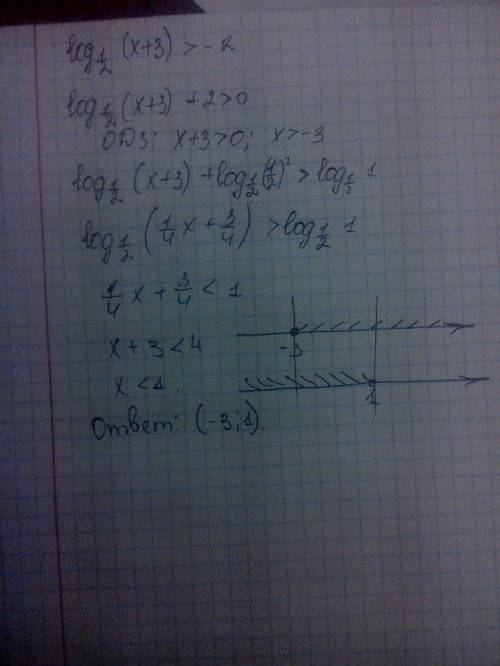 log½ (x+3) > -2
log½ (x+3) +2>0
ОДЗ: x+3>0; x>-3
log½ (x+3) + log½ (½)² > log½ 1
log½ (¼x + ¾) > log½ 1
¼x + ¾ < 1
x+3<4
x<1.
-3
1
Ответ: (-3;1).